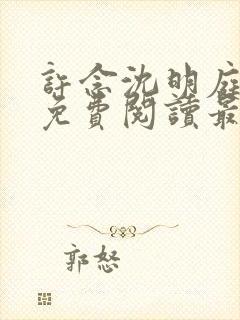 許念沈明庭
免費閱讀最
郭怒